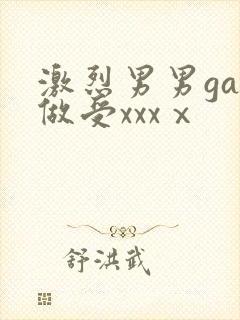 激烈男男ga
做受xxx x
舒洪武